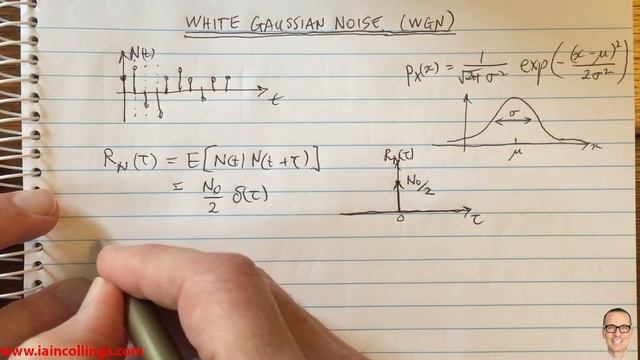 WHITE GAUSSIAN NOISE (WGN)
N(t)
t
pₓ(x) = 1/√(2πσ²) exp(-(x-μ)²/2σ²)
σ
μ
x
R_N(τ) = E[N(t) N(t+τ)]
= N₀/2 δ(τ)
R_N(τ)
N₀/2
0
τ
www.iaincollings.com